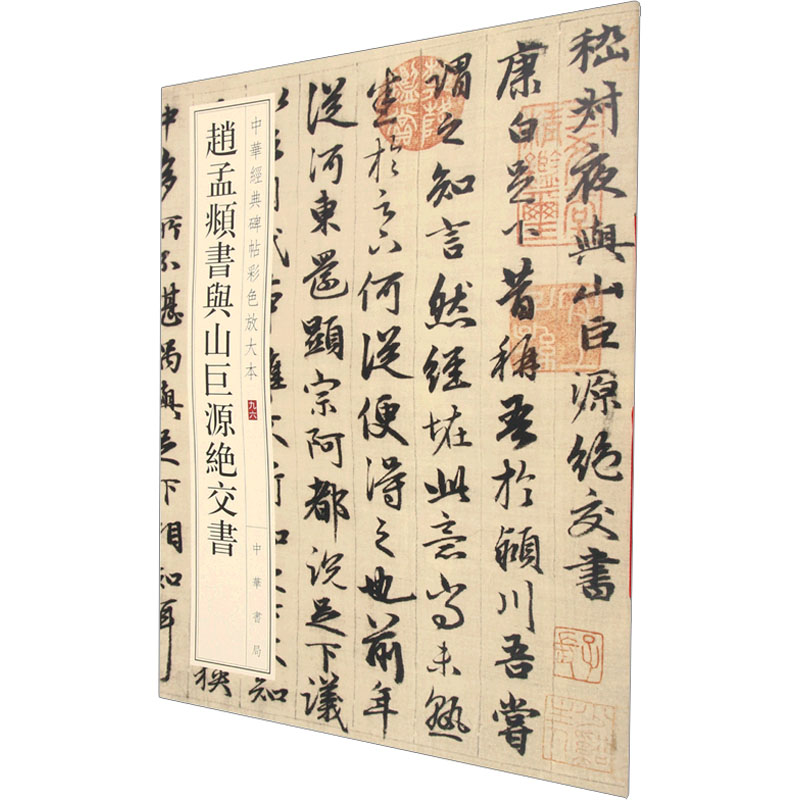 嵇叔夜與山巨源絕交書
康白足下昔稱吾於潁川吾嘗
謂之知言然經怪此意尚未熟
悉於足下何從便得之也前年
從河東還顯宗阿都說足下議
狹
中多所不堪偶與足下相知耳
中華經典碑帖彩色放大本 九六
趙孟頫書與山巨源絕交書
中華書局